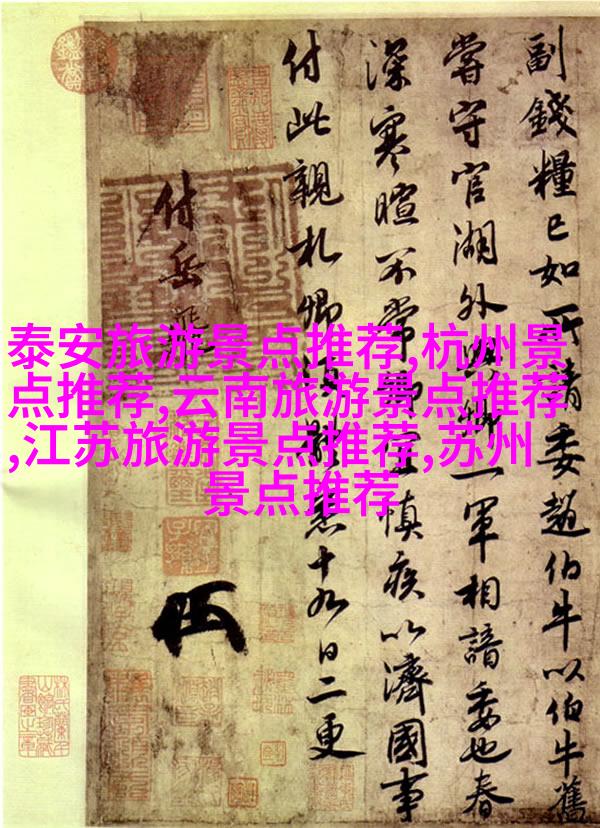 副錢糧已如所請委趙伯牛以伯牛舊
嘗守官湖外與卿一軍相諳委也春
深寒暄不常卿宜慎疾以濟國事
付此親札卿須體悉十九日二更
付岳飛
泰安旅游景点推荐,杭州景
点推荐,云南旅游景点推荐
,江苏旅游景点推荐,苏州
景点推荐